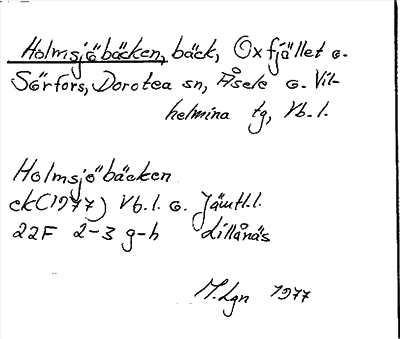 Holmsjöbäcken, bäck, Oxfjället o.
Sörfors, Dorotea sn, Åsele o. Vil-
helmina tg, Vb.l.
Holmsjöbäcken
ek(1977) Vb.l. o. Jämtl.l.
22F 2-3 g-h Lillånäs
M.Lgn 1977